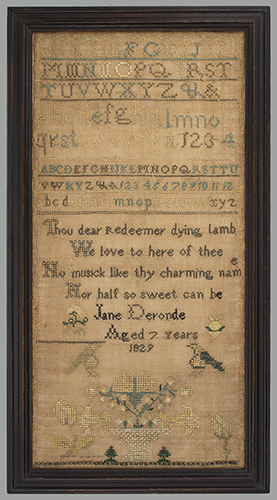 FG J
MMNNOPQ RST
TUVWXYZ&
efg lmno
qrst 1234
ABCDEFGHIJKLMNOPQRSTTU
VWXYZ& 123456789101112
bcd mnop xyz
Thou dear Redeemer dying lamb
We love to here of thee
No musick like thy charming name
Nor half so sweet can be
Jane Deronde
Aged 7 Years
1829